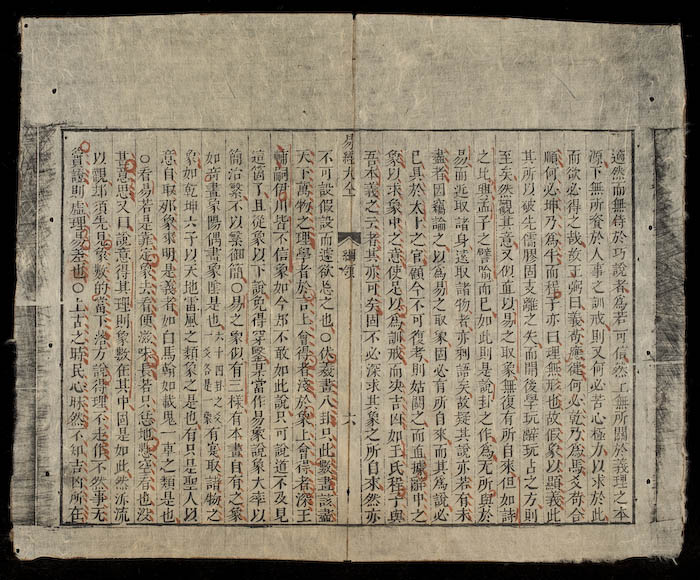 適然而無待於巧說者為若可信然上無所關於義理之本
源下無所資於人事之訓戒則又何必苦心極力以求於此
而欲必得之哉故王弼曰義苟應健何必乾乃為馬爻苟合
順何必坤乃為牛而程子亦曰理無形也故假象以顯義此
其所以破先儒膠固支離之失而開後學玩辭玩占之方則
至矣然觀其意又似直以易之取象無復有所自來但如詩
之比興孟子之譬喻而已如此則是說卦之作為無所與於
易而近取諸身遠取諸物者亦剩語矣故疑其說亦若有未
盡者因竊論之以為易之取象固必有所自來而其為說必
已具於太卜之官顧今不可復考則姑闕之而直據辭中之
象以求象中之意使足以為訓戒而決吉凶如王氏程子與
吾本義之云者其亦可矣固不必深求其象之所自來然亦
易經大全 綱領 六
不可謂假設而遽欲忘之也○伏羲畫八卦只此數畫該盡
天下萬物之理學者於言上會得者淺於象上會得者深王
輔嗣伊川皆不信象如今却不敢如此說只可說道不及見
這箇了且從象以下說免得穿鑿某嘗作易象說大率以
簡治繁不以繁御簡○易之象似有三樣有本畫自有之象
如奇畫象陽偶畫象陰是也六十四卦之爻一爻各是一象有實取諸物之
象如乾坤六子以天地雷風之類象之是也有只是聖人以
意自取那象來明是義者如白馬翰如載鬼一車之類是也
○看易若是靠定象去看便滋味長若只恁地懸空看也沒
甚意思又曰說意得其理則象數在其中固是如此然泝流
以觀却須先見象數的當下落方說得理不走作不然事無
實證則虛理易差也○上古之時民心昧然不知吉凶所在